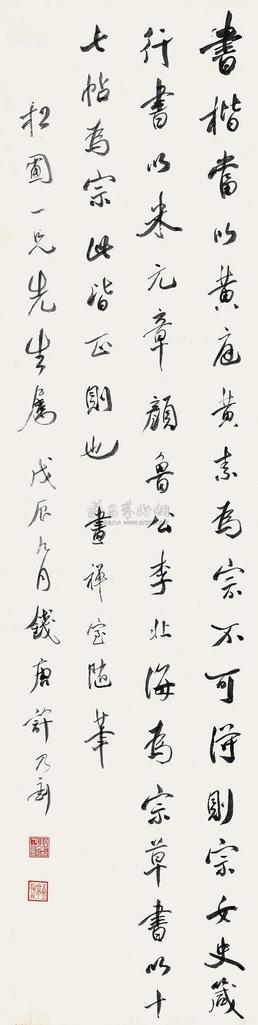 書楷當以黄庭黄素為宗不可得則宗女史箴
行書以米元章顔魯公李北海為宗草書以十
七帖為宗此皆正則也 畫禪室随筆
松圃一兄先生屬 戊辰九月錢唐許乃釗